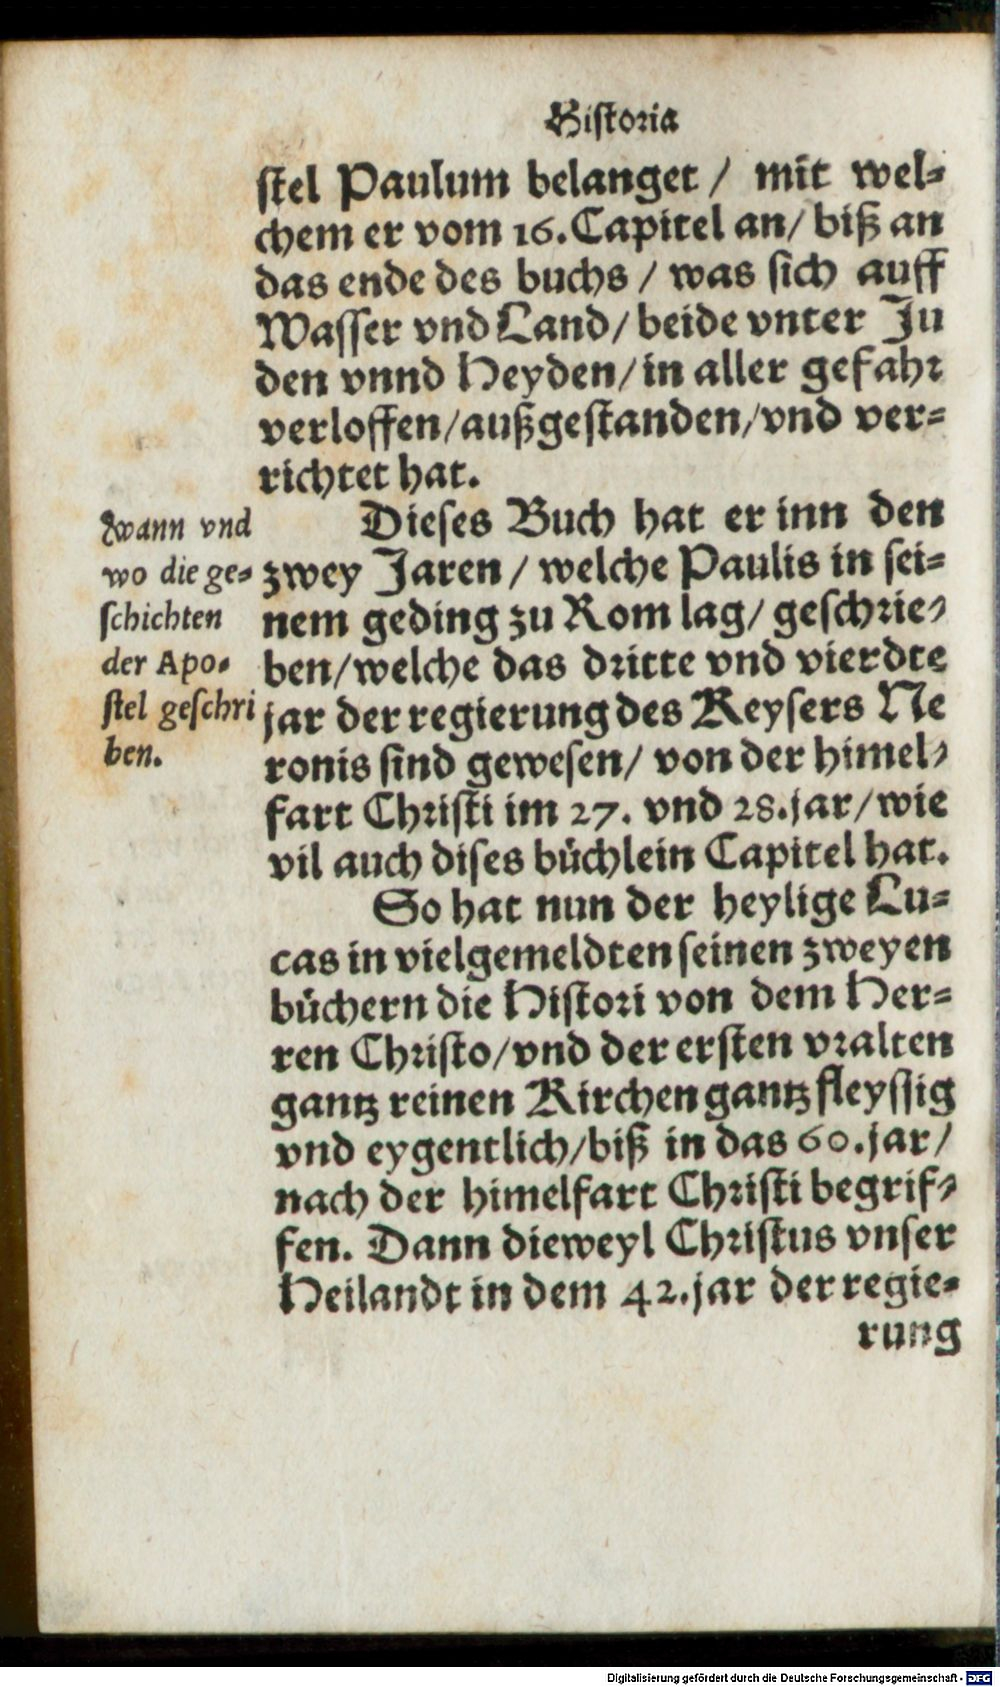 Historia
stel Paulum belanget / mit wel⸗
chem er vom 16. Capitel an/ biß an
das ende des buchs / was sich auff
Wasser vnd Land/ beide vnter Ju
den vnnd Heyden/ in aller gefahr
verloffen/ außgestanden/ vnd ver⸗
richtet hat.
Wann vnd
wo die ge⸗
schichten
der Apo⸗
stel geschri
ben.
Dieses Buch hat er inn den
zwey Jaren / welche Paulis in sei⸗
nem geding zu Rom lag/ geschrie⸗
ben/ welche das dritte vnd vierdte
jar der regierung des Keysers Ne
ronis sind gewesen/ von der himel⸗
fart Christi im 27. vnd 28. jar/ wie
vil auch dises büchlein Capitel hat.
So hat nun der heylige Lu⸗
cas in vielgemeldten seinen zweyen
büchern die Histori von dem Her⸗
ren Christo/ vnd der ersten vralten
gantz reinen Kirchen gantz fleyssig
vnd eygentlich/ biß in das 60. jar/
nach der himelfart Christi begrif⸗
fen. Dann dieweyl Christus vnser
Heilandt in dem 42. jar der regie⸗
rung
Digitalisierung gefördert durch die Deutsche Forschungsgemeinschaft - DFG